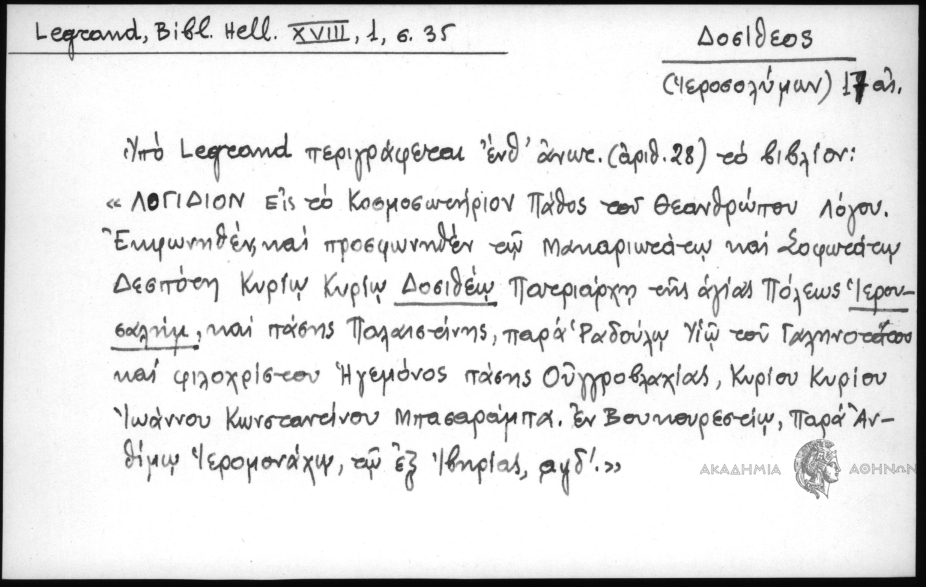 Legrand, Bibl. Hell. XVIII, 1, σ. 35
Δοσίθεος
(Ἱεροσολύμων) 17 αἰ.
Ὑπό Legrand περιγράφεται ἔνθ' ἀνωτ. (ἀριθ. 28) τό βιβλίον:
« ΛΟΓΙΔΙΟΝ Εἰς τό Κοσμοσωτήριον Πάθος τοῦ Θεανθρώπου Λόγου.
Ἐκφωνηθέν, καί προσφωνηθέν τῷ Μακαριωτάτῳ καί Σοφωτάτῳ
Δεσπότῃ Κυρίῳ Κυρίῳ Δοσιθέῳ Πατριάρχῃ τῆς ἁγίας Πόλεως Ἱερου-
σαλήμ, καί πάσης Παλαιστίνης, παρά Ῥαδούλῳ Υἱῷ τοῦ Γαληνοτάτου
καί φιλοχρίστου Ἡγεμόνος πάσης Οὐγγροβλαχίας, Κυρίου Κυρίου
Ἰωάννου Κωνσταντίνου Μπασαράμπα. ἐν Βουκουρεστίῳ, Παρά Ἀν-
θίμῳ Ἱερομονάχῳ, τῷ ἐξ Ἰβηρίας, αψδ'.»
ΑΚΑΔΗΜΙΑ ΑΘΗΝΩΝ